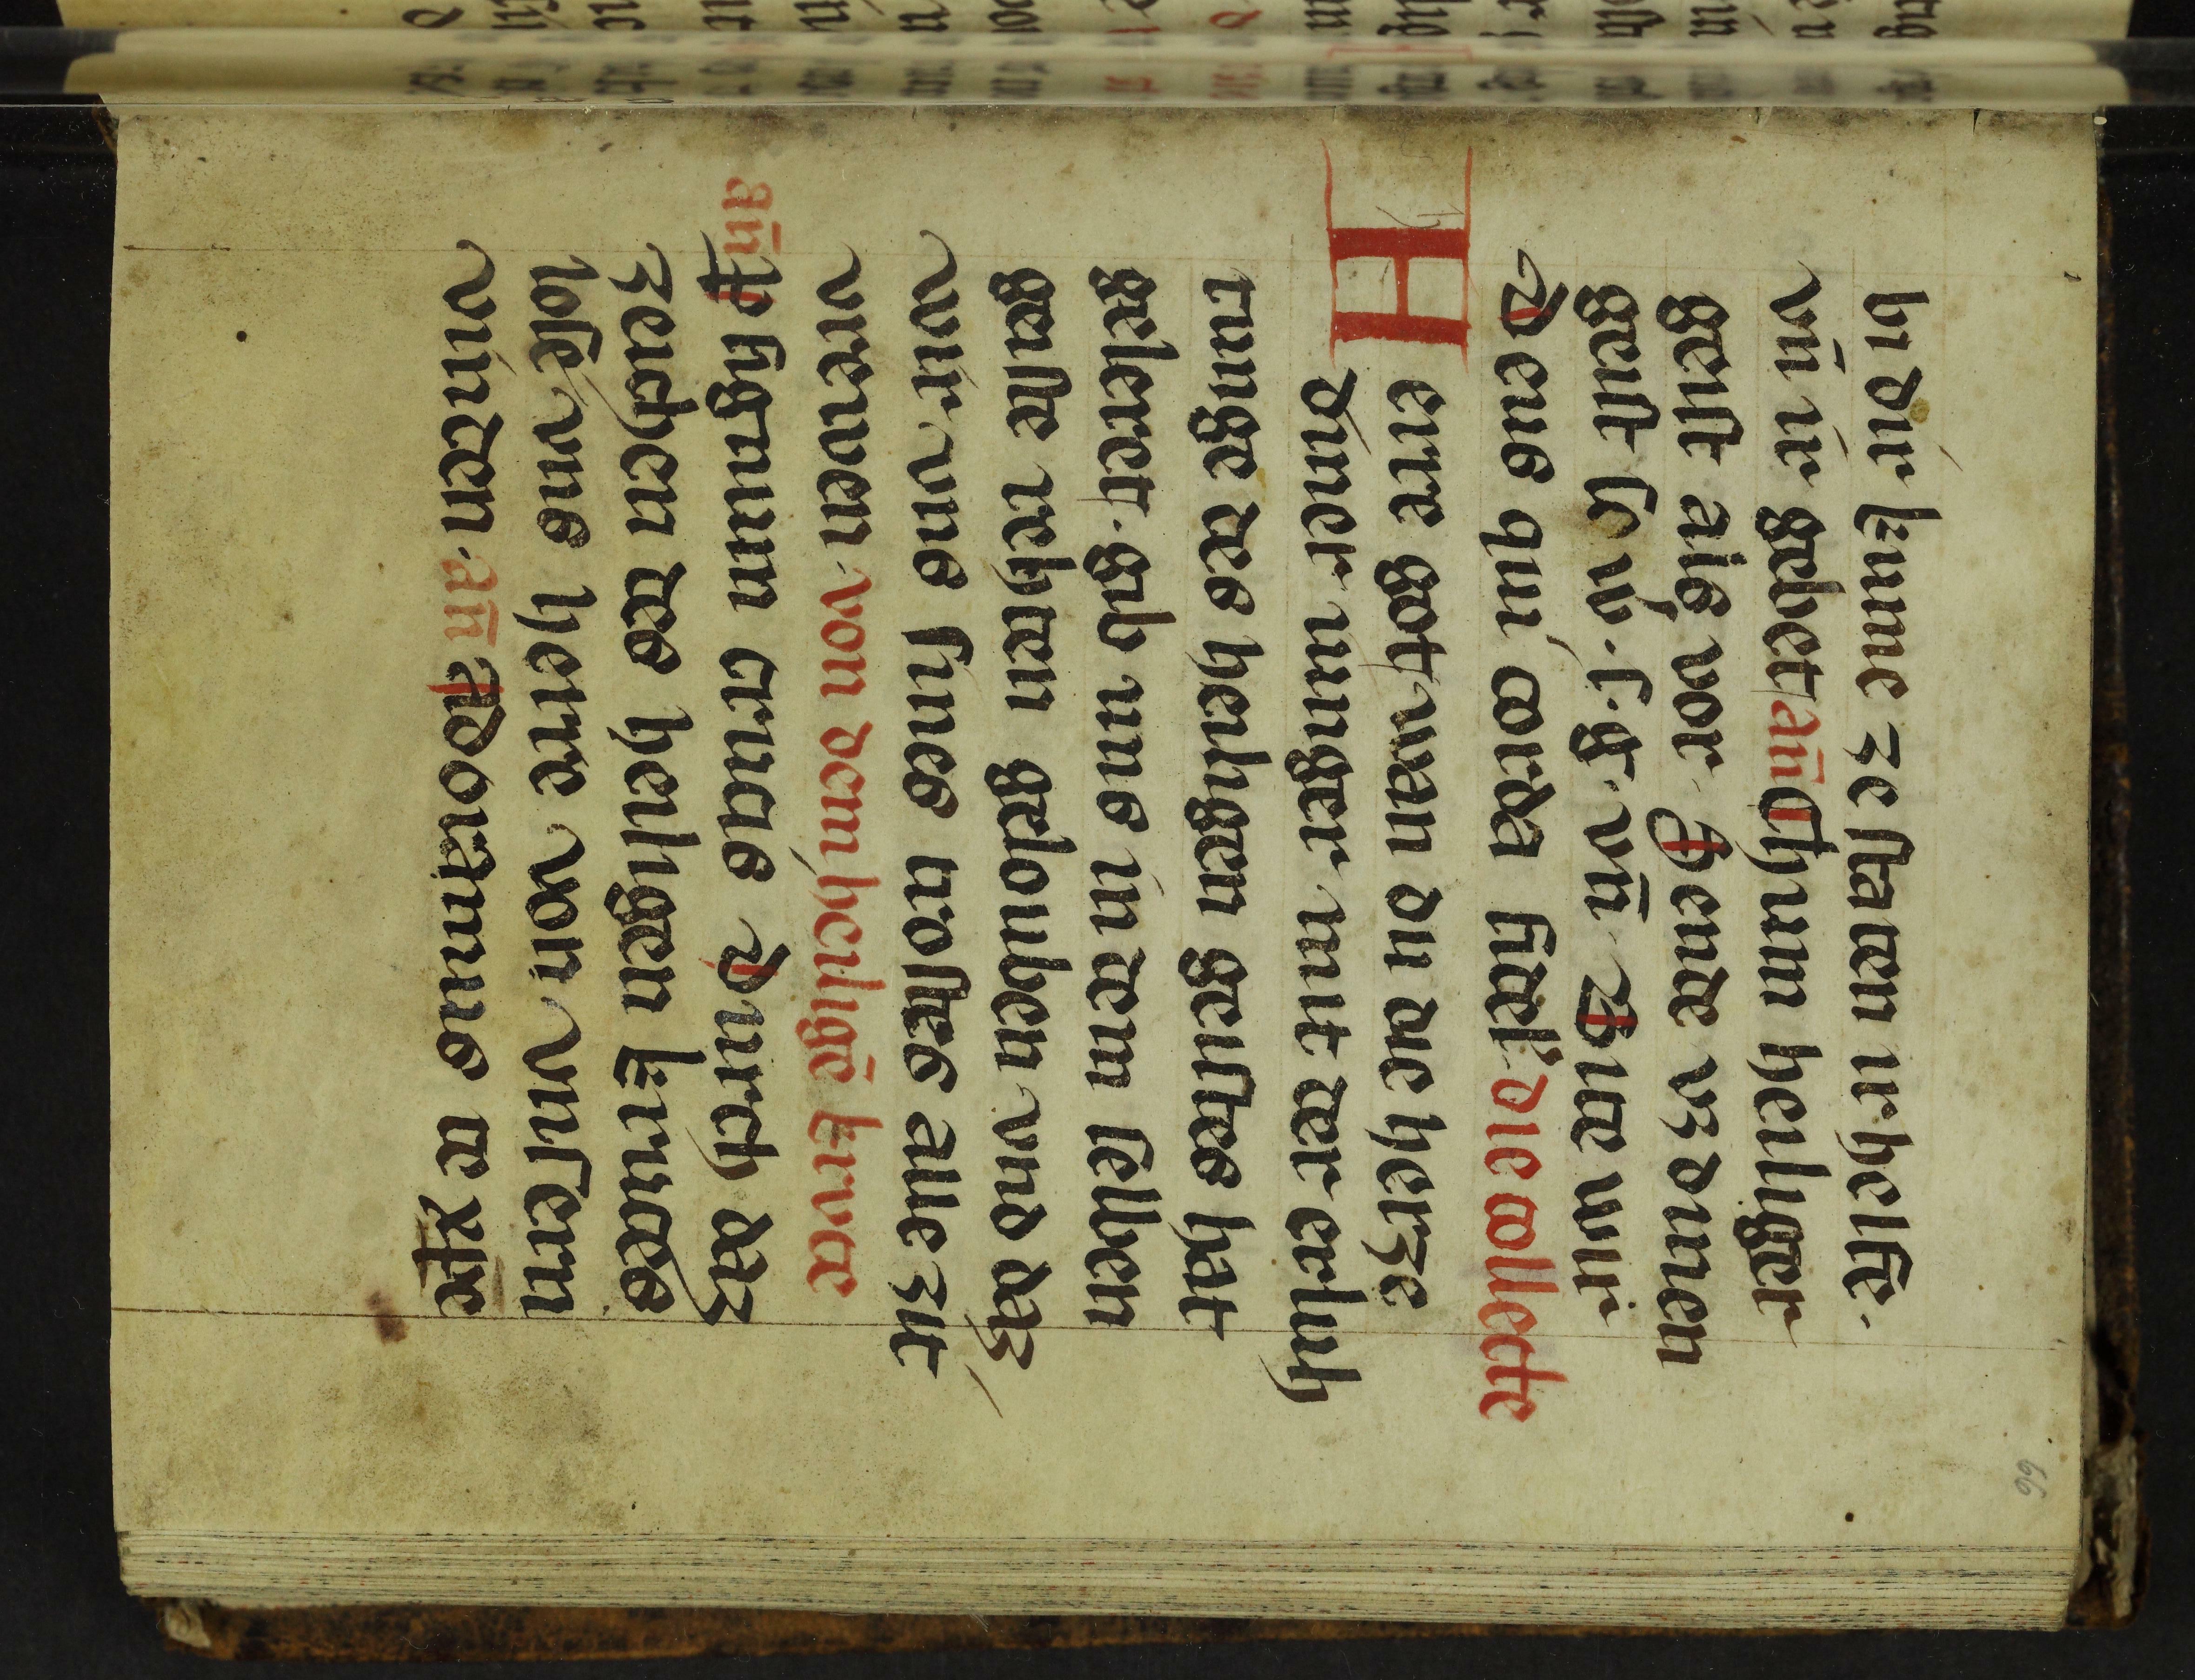 66
bi dir kume ze staten irhelfe.
vn̄ ir gebett an̄ Chum heiliger
geist als vor Sende vz dinen
geist vn̄ Bitte wir
Deus qui corda fidel. die collecte
Herre got wan du die herze
diner iunger mit der erlüh
tunge des heiligen geistes hat
geleret. gib uns in dem selben
geiste rehten gelouben vnd daz
wir vns sines trostes alle zit
vrewen. von dem heiligē krvce
an̄ P signum crucis Durch daz
zeichen des heiligen kruces
lose vns herre von vnsern
vinden. an̄ Adoramus te xp̄e